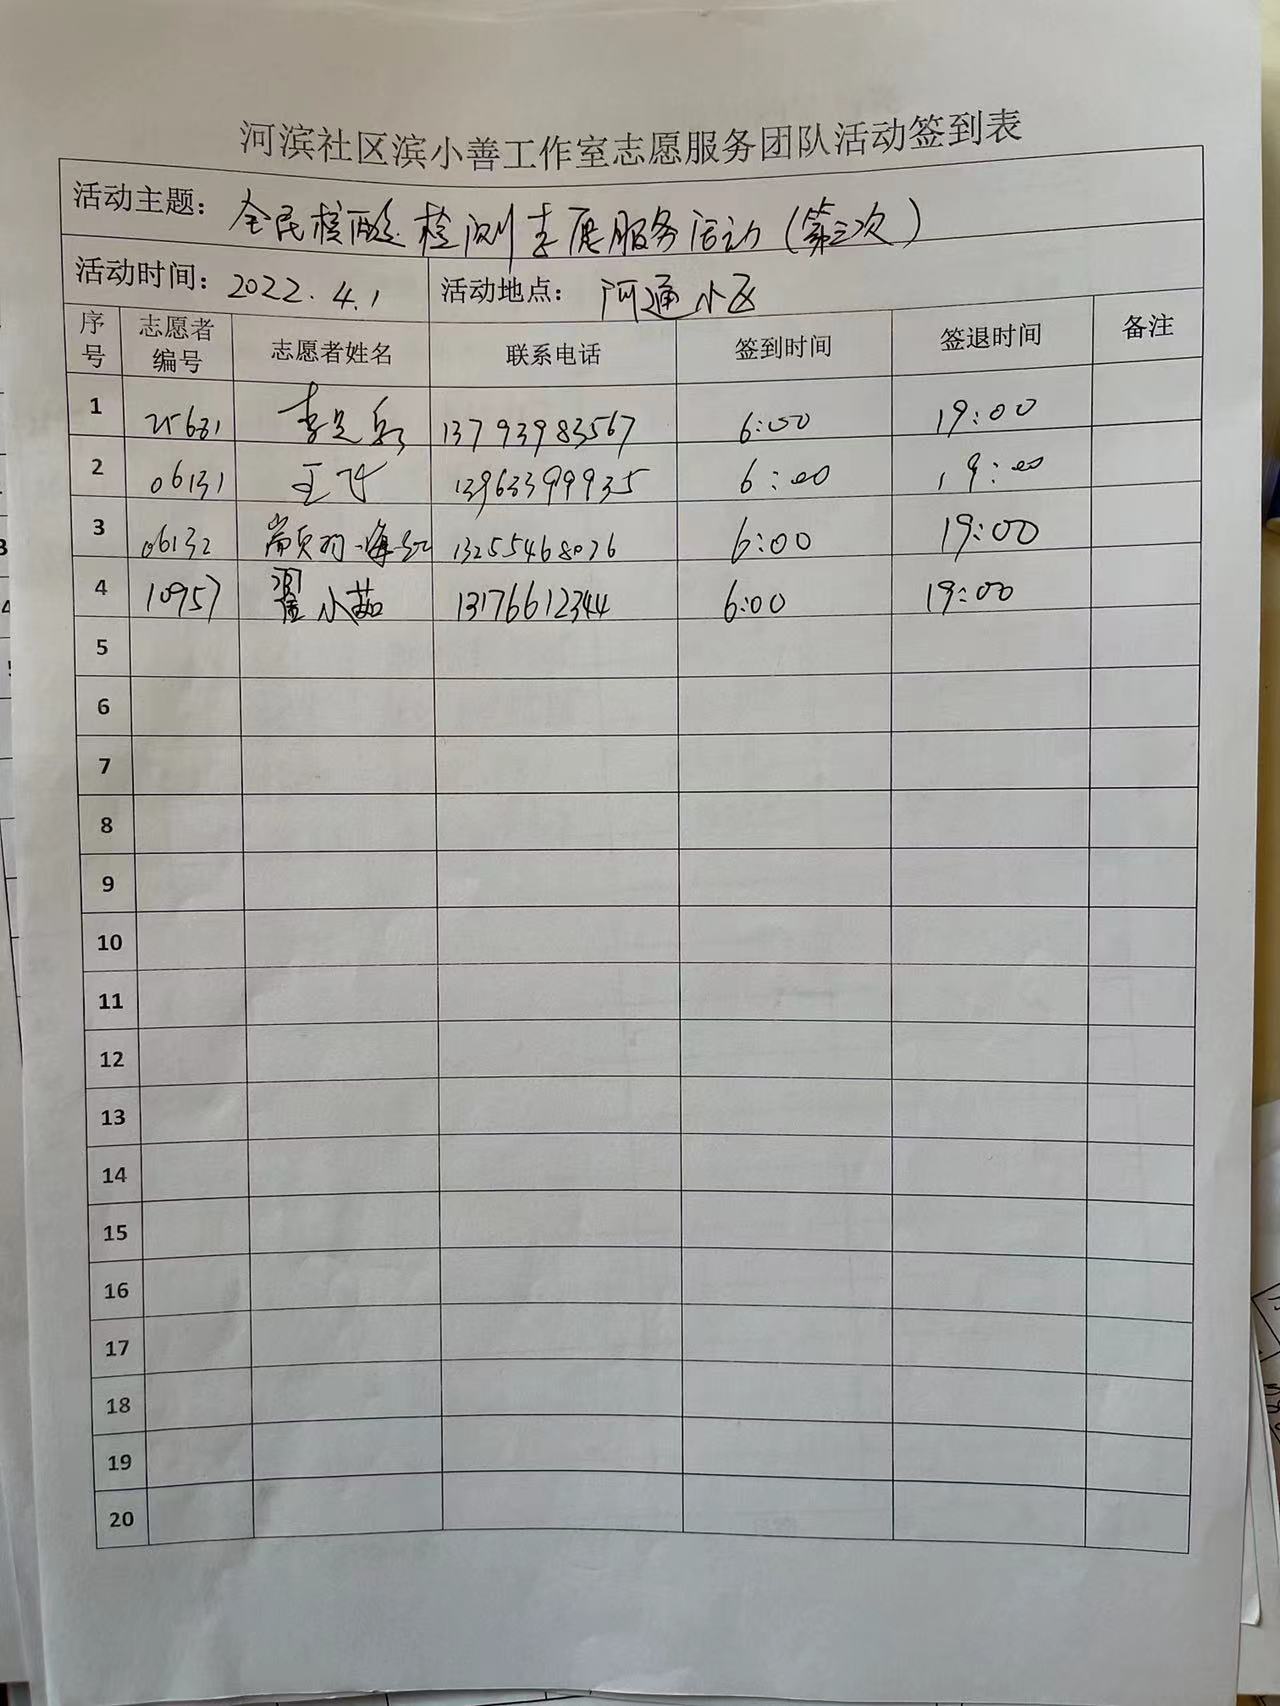 河滨社区滨小善工作室志愿服务团队活动签到表
活动主题: 全民核酸检测志愿服务活动(第三次)
活动时间: 2022.4.1 活动地点: 河通小区
序号 志愿者编号 志愿者姓名 联系电话 签到时间 签退时间 备注
1 25631 13793983567 6:00 19:00
2 06131 王飞 13963399935 6:00 19:00
3 06132 海红 13255468076 6:00 19:00
4 10957 翟小茹 13176612344 6:00 19:00
5
6
7
8
9
10
11
12
13
14
15
16
17
18
19
20